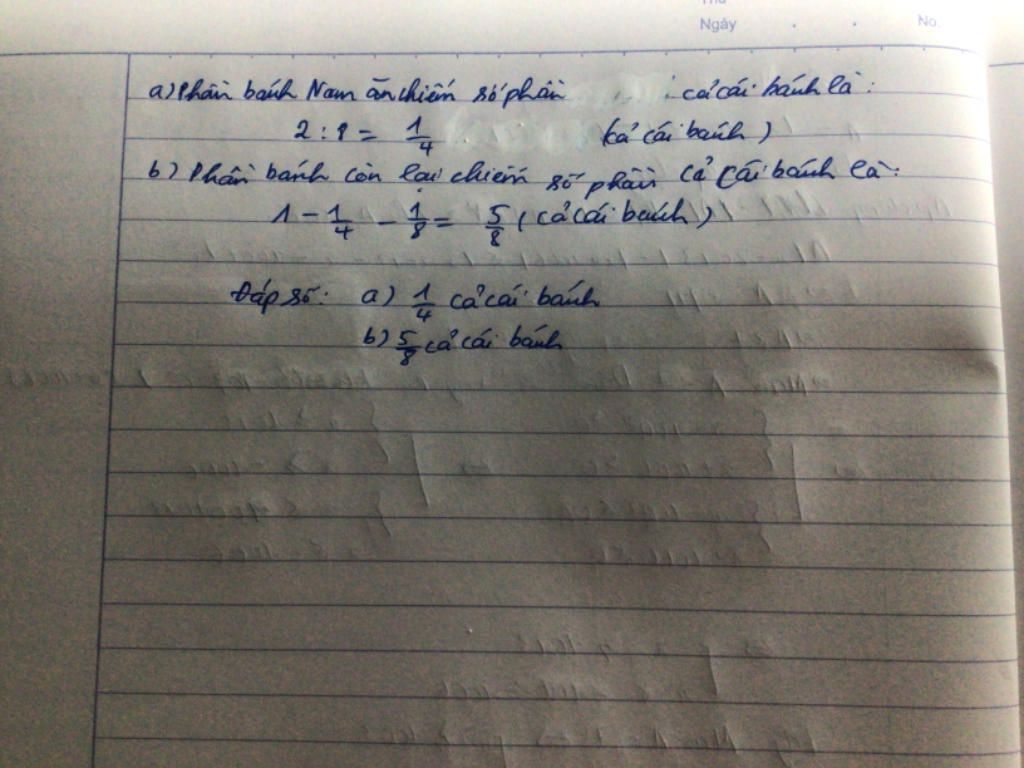 Thứ
Ngày . . No.
a) Phần bánh Nam ăn chiếm số phần cả cái bánh là:
2 : 8 = 1/4 (cả cái bánh)
b) Phần bánh còn lại chiếm số phần cả cái bánh là:
1 - 1/4 - 1/8 = 5/8 (cả cái bánh)
Đáp số: a) 1/4 cả cái bánh
b) 5/8 cả cái bánh